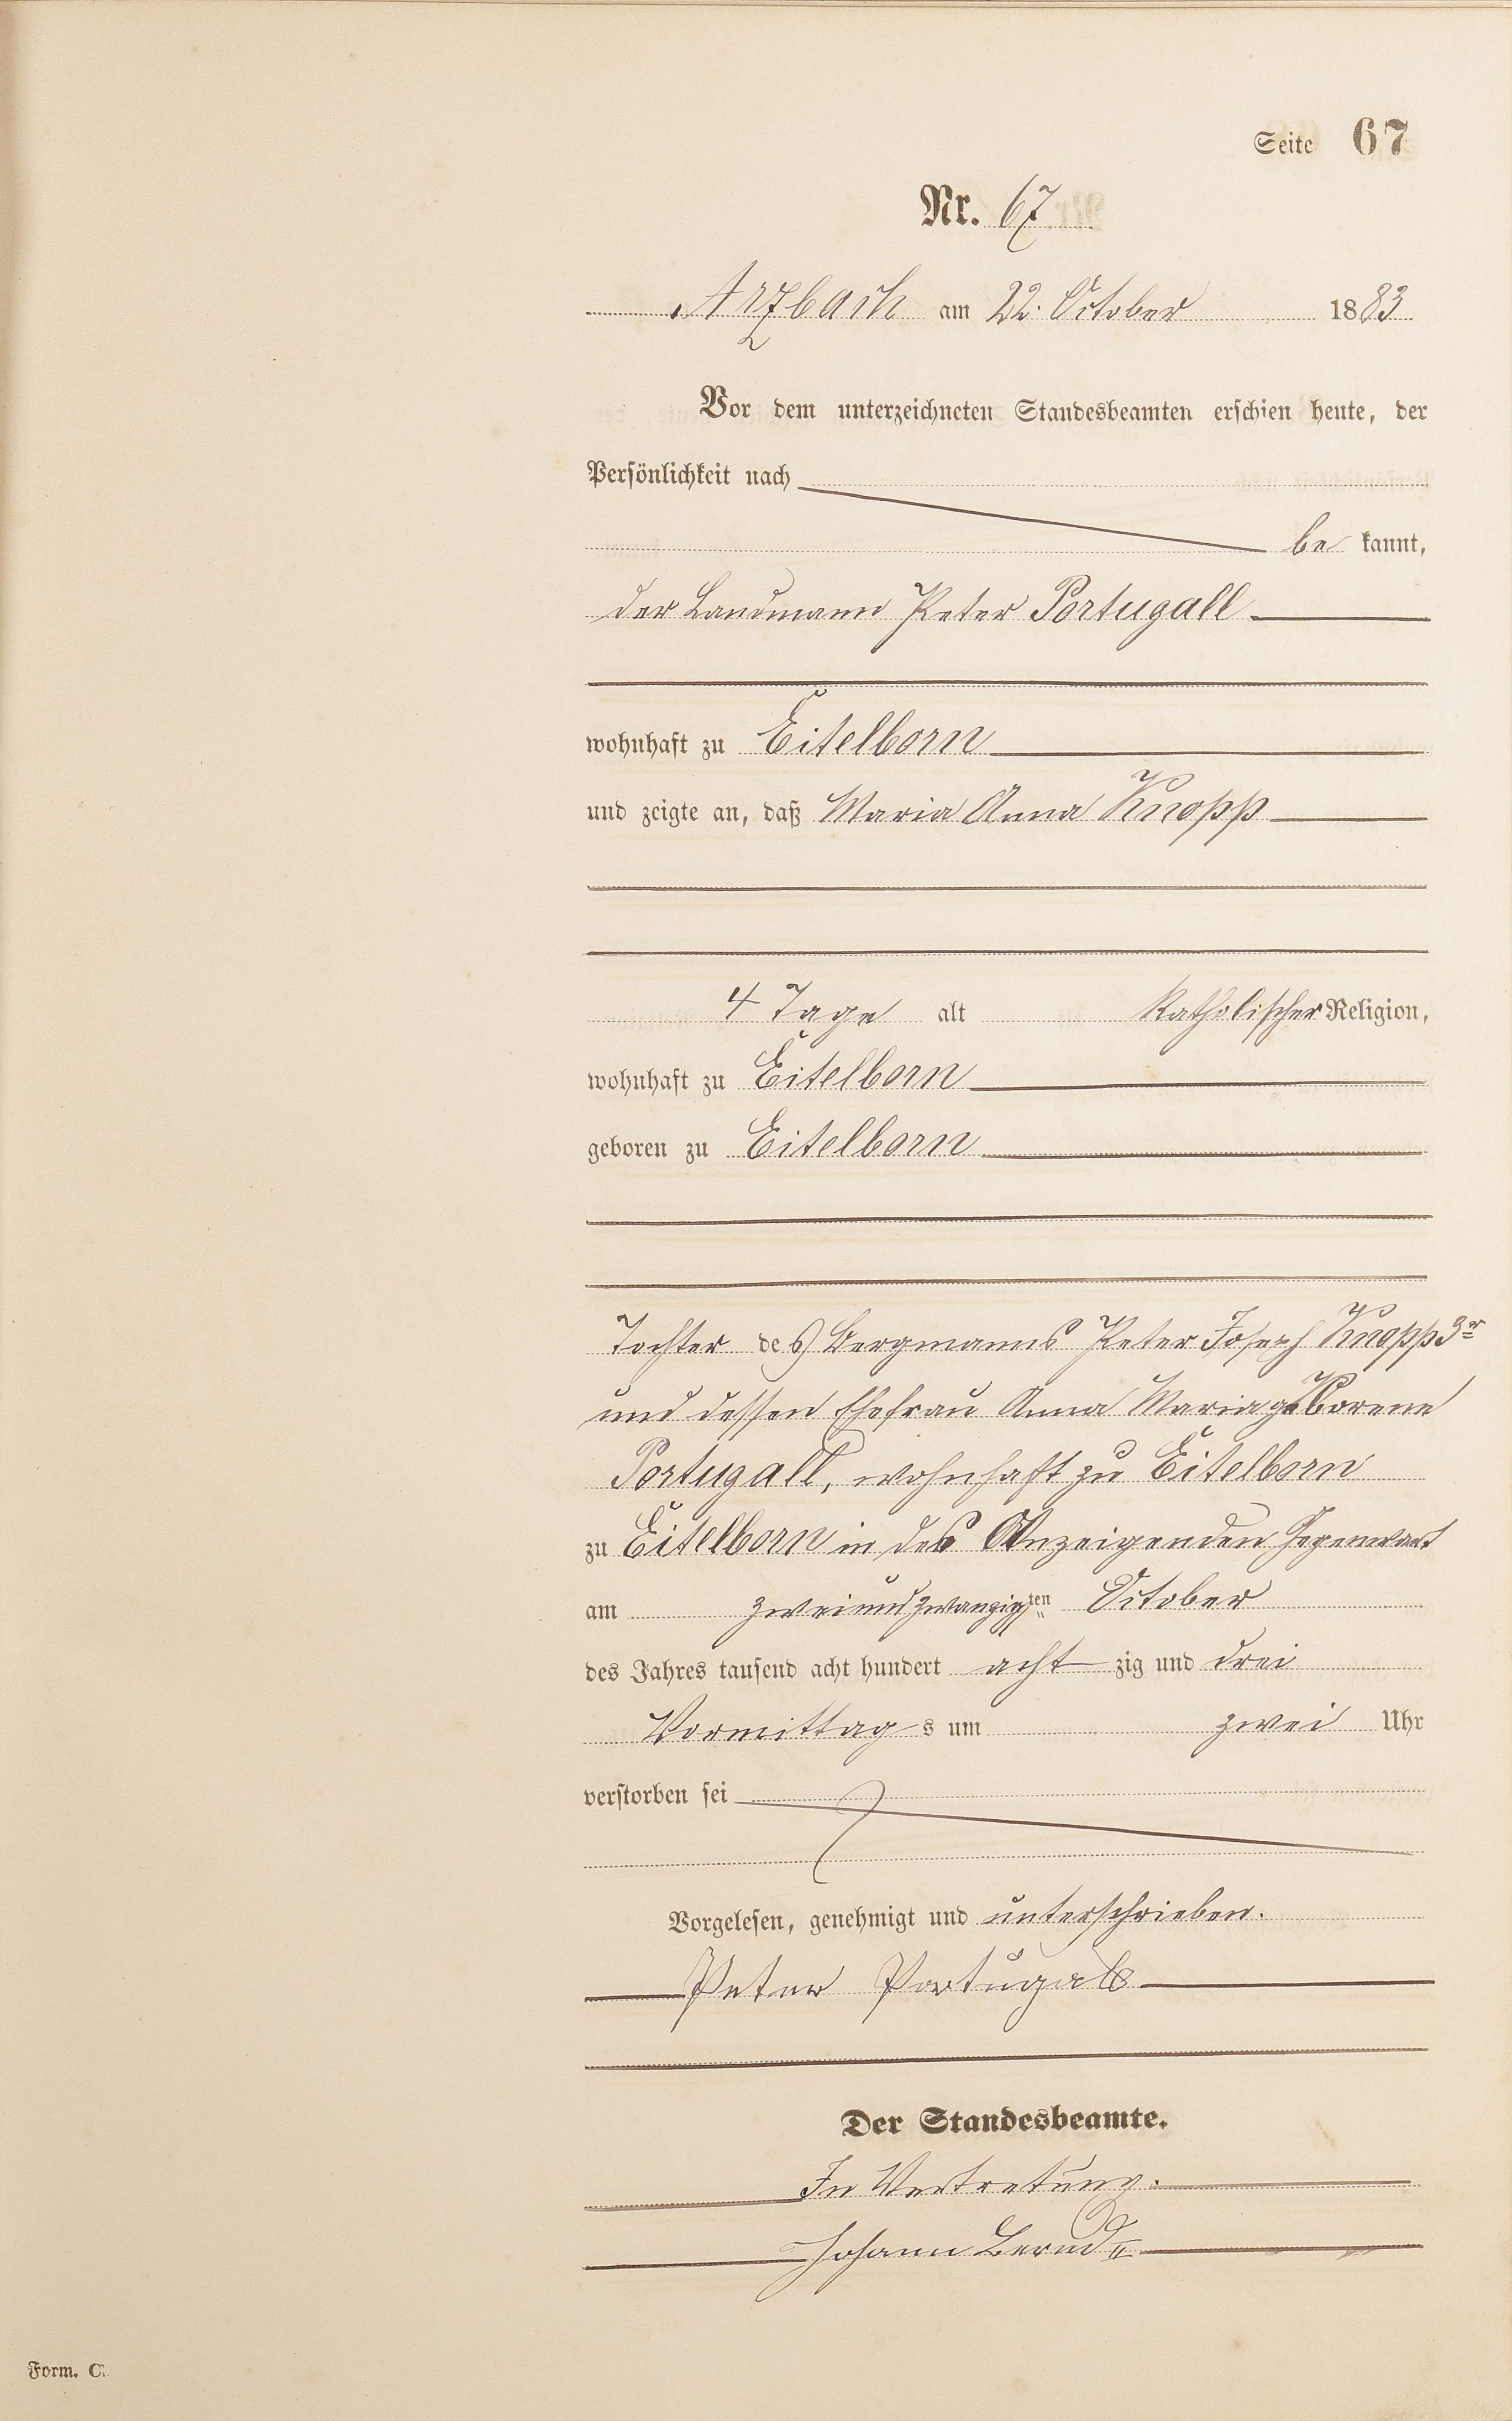 Seite 67
Nr. 67
Arzbach am 22. October 1883
Vor dem unterzeichneten Standesbeamten erschien heute, der
Persönlichkeit nach
be kannt,
der Landmann Peter Portugall
wohnhaft zu Eitelborn
und zeigte an, daß Maria Anna Knopp
4 Tage alt katholischer Religion,
wohnhaft zu Eitelborn
geboren zu Eitelborn
Tochter des Bergmanns Peter Joseph Knopp 3r
und dessen Ehefrau Anna Maria geborene
Portugall, wohnhaft zu Eitelborn
zu Eitelborn in des Anzeigenden Gegenwart
am zweiundzwanzigsten October
des Jahres tausend acht hundert acht zig und drei
Vormittag s um zwei Uhr
verstorben sei
Vorgelesen, genehmigt und unterschrieben.
Peter Portugall
Der Standesbeamte.
In Vertretung.
Johann Bernd II
Form. C.